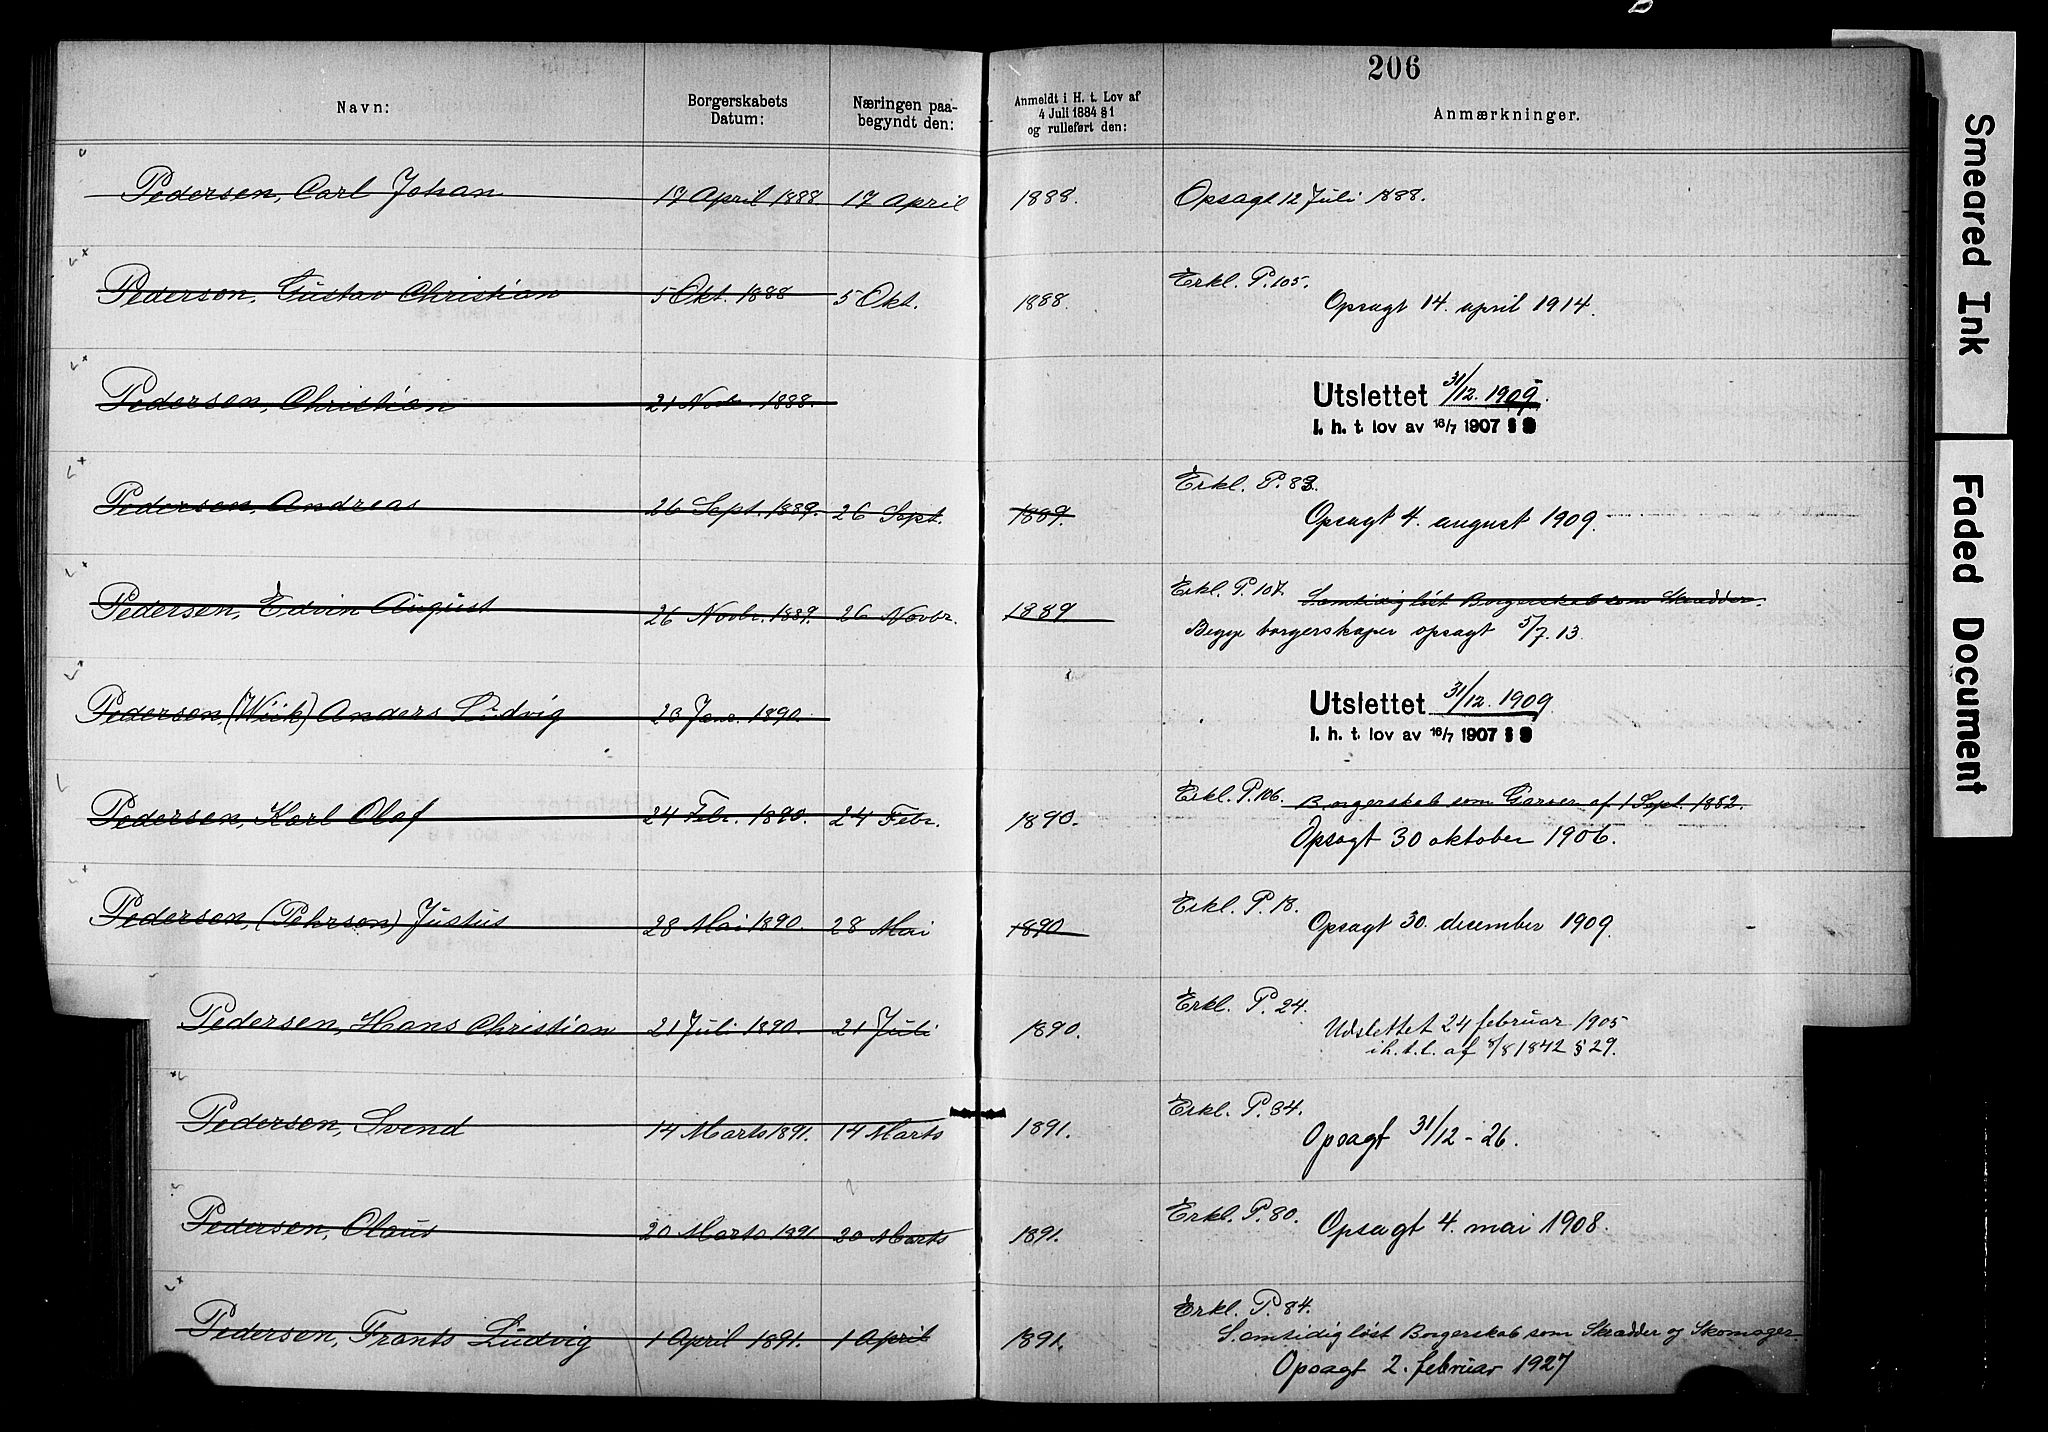 206
Navn: Borgerskabets Datum: Næringen paabegyndt den: Anmeldt i H. t. Lov af 4 Juli 1884 § 1 og rulleført den: Anmærkninger.
Pedersen, Carl Johan 17 April 1888. 17 April 1888. Opsagt 12 Juli 1888.
Pedersen, Gustav Christian 5 Okt. 1888 5 Okt. 1888. Erkl. P. 105.
Opsagt 14. april 1914.
Pedersen, Christian 21 Novbr. 1888. Utslettet 31/12. 1909.
I. h. t. lov av 16/7 1907 § 9
Pedersen, Andreas 26 Sept. 1889. 26 Sept. 1889. Erkl. P. 83.
Opsagt 4. august 1909.
Pedersen, Edvin August 26 Novbr. 1889. 26 Novbr. 1889 Erkl. P. 107. Samtidig løst Borgerskab som Skrædder.
Begge borgerskaper opsagt 5/7. 13.
Pedersen, (Wiik) Anders Ludvig 23 Jan. 1890. Utslettet 31/12. 1909
I. h. t. lov av 16/7 1907 § 9
Pedersen, Karl Olaf 24 Febr. 1890. 24 Febr. 1890. Erkl. P. 106. Borgerskab som Garver af 1 Sept. 1882.
Opsagt 30 oktober 1906.
Pedersen, (Pehrson) Justus 28 Mai 1890. 28 Mai 1890 Erkl. P. 18.
Opsagt 30. desember 1909.
Pedersen, Hans Christian 21 Juli 1890. 21 Juli 1890. Erkl. P. 24.
Udslettet 24 februar 1905
i h. t. l. af 8/8 1842 § 29.
Pedersen, Svend 14 Marts 1891. 14 Marts 1891. Erkl. P. 34.
Opsagt 31/12 - 26.
Pedersen, Claus 20 Marts 1891 20 Marts 1891. Erkl. P. 80. Opsagt 4. mai 1908.
Pedersen, Frants Ludvig 1 April 1891. 1 April 1891. Erkl. P. 84.
Samtidig løst Borgerskab som Skrædder og Skomager.
Opsagt 2. februar 1927
Smeared Ink
Faded Document